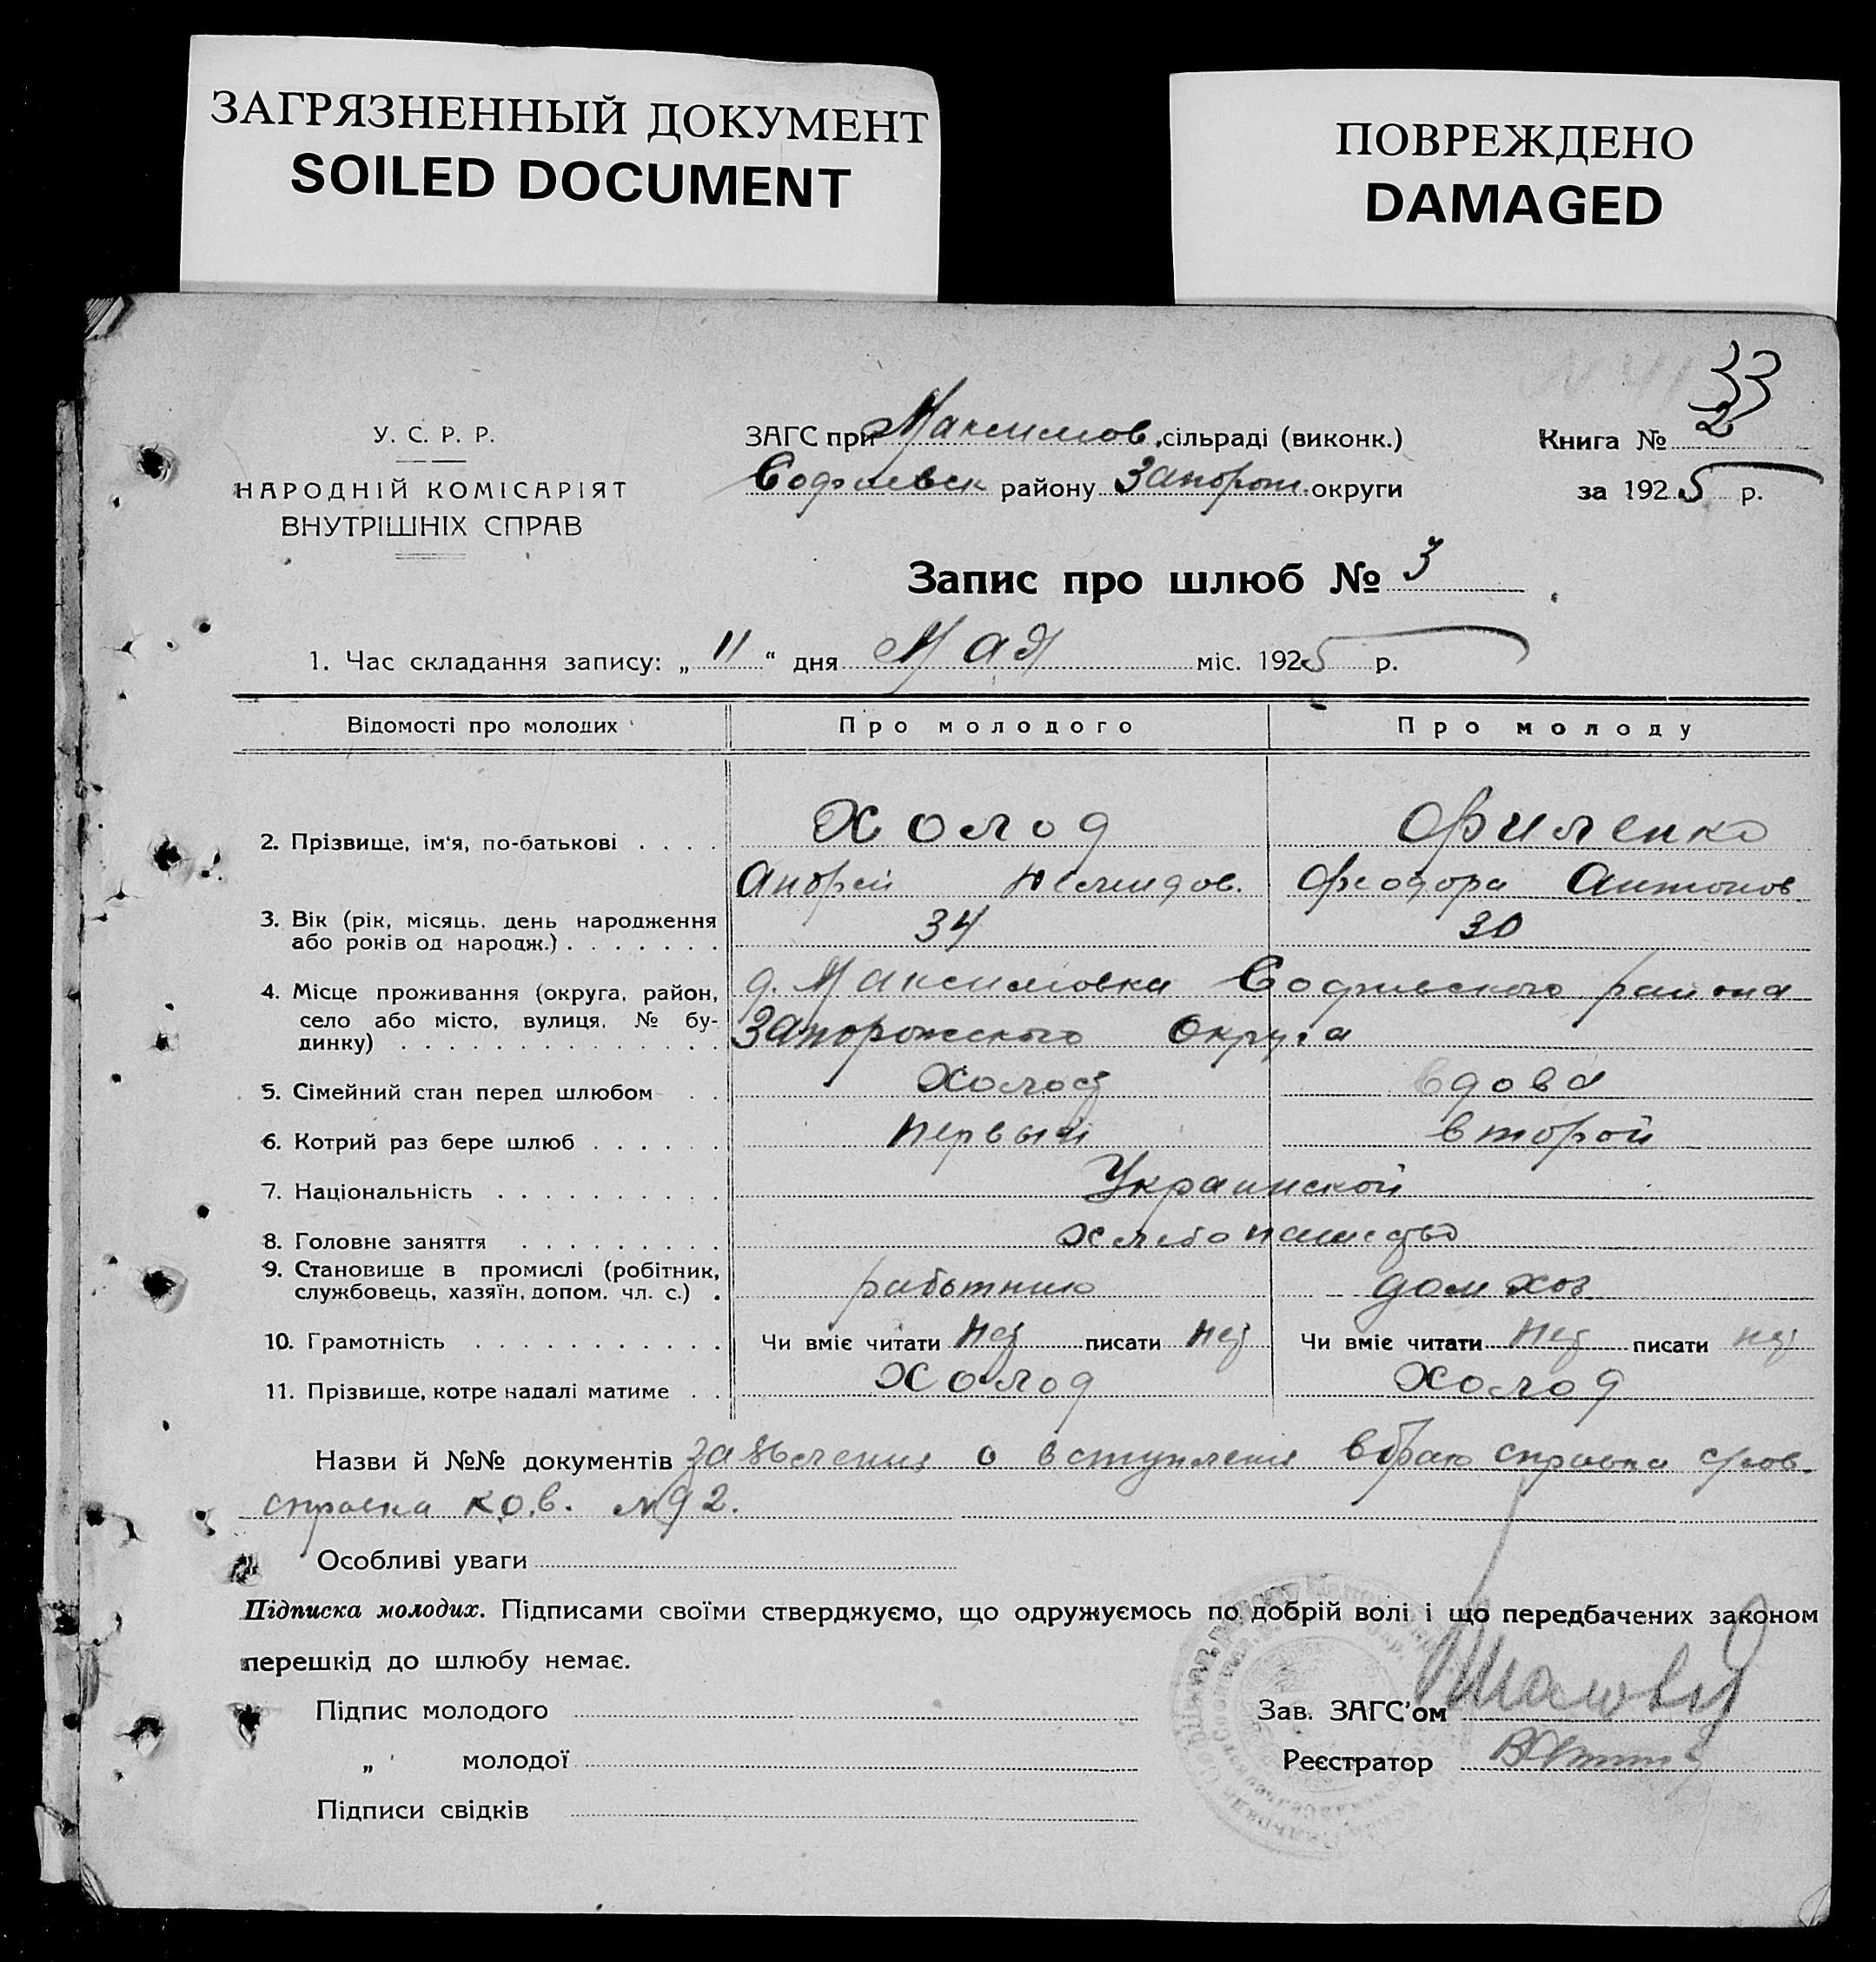 ЗАГРЯЗНЕННЫЙ ДОКУМЕНТ
SOILED DOCUMENT
ПОВРЕЖДЕНО
DAMAGED
33
У. С. Р. Р.
НАРОДНІЙ КОМІСАРІЯТ
ВНУТРІШНІХ СПРАВ
ЗАГС при Максимов. сільраді (виконк.)
Софиевск району Запорож. округи
Книга № 2
за 1925 р.
Запис про шлюб № 3
1. Час складання запису: „ 11 “ дня Мая міс. 1925 р.
Відомості про молодих Про молодого Про молоду
2. Прізвище, ім'я, по-батькові . . . . Холод Филенко
Андрей Феодора Антонов
3. Вік (рік, місяць, день народження
або років од народж.) . . . . . . . 34 30
4. Місце проживання (округа, район,
село або місто, вулиця, № бу-
динку) . . . . . . . . . . . . . .
д. Максимовка Софиевского района
Запорожского Округа
5. Сімейний стан перед шлюбом . . Холост вдова
6. Котрий раз бере шлюб . . . . . . первый второй
7. Національність . . . . . . . . . . Украинской
8. Головне заняття . . . . . . . . . хлебопашество
9. Становище в промислі (робітник,
службовець, хазяїн, допом. чл. с.) . работник дом хоз
10. Грамотність . . . . . . . . . . . Чи вміє читати нет писати нет Чи вміє читати нет писати нет
11. Прізвище, котре надалі матиме . . Холод Холод
Назви й №№ документів заявления о вступлении в брак справка
справка к.о.в. №92.
Особливі уваги
Підписка молодих. Підписами своїми стверджуємо, що одружуємось по добрій волі і що передбачених законом
перешкід до шлюбу немає.
Підпис молодого
Зав. ЗАГС'ом
„ молодої
Реєстратор
Підписи свідків